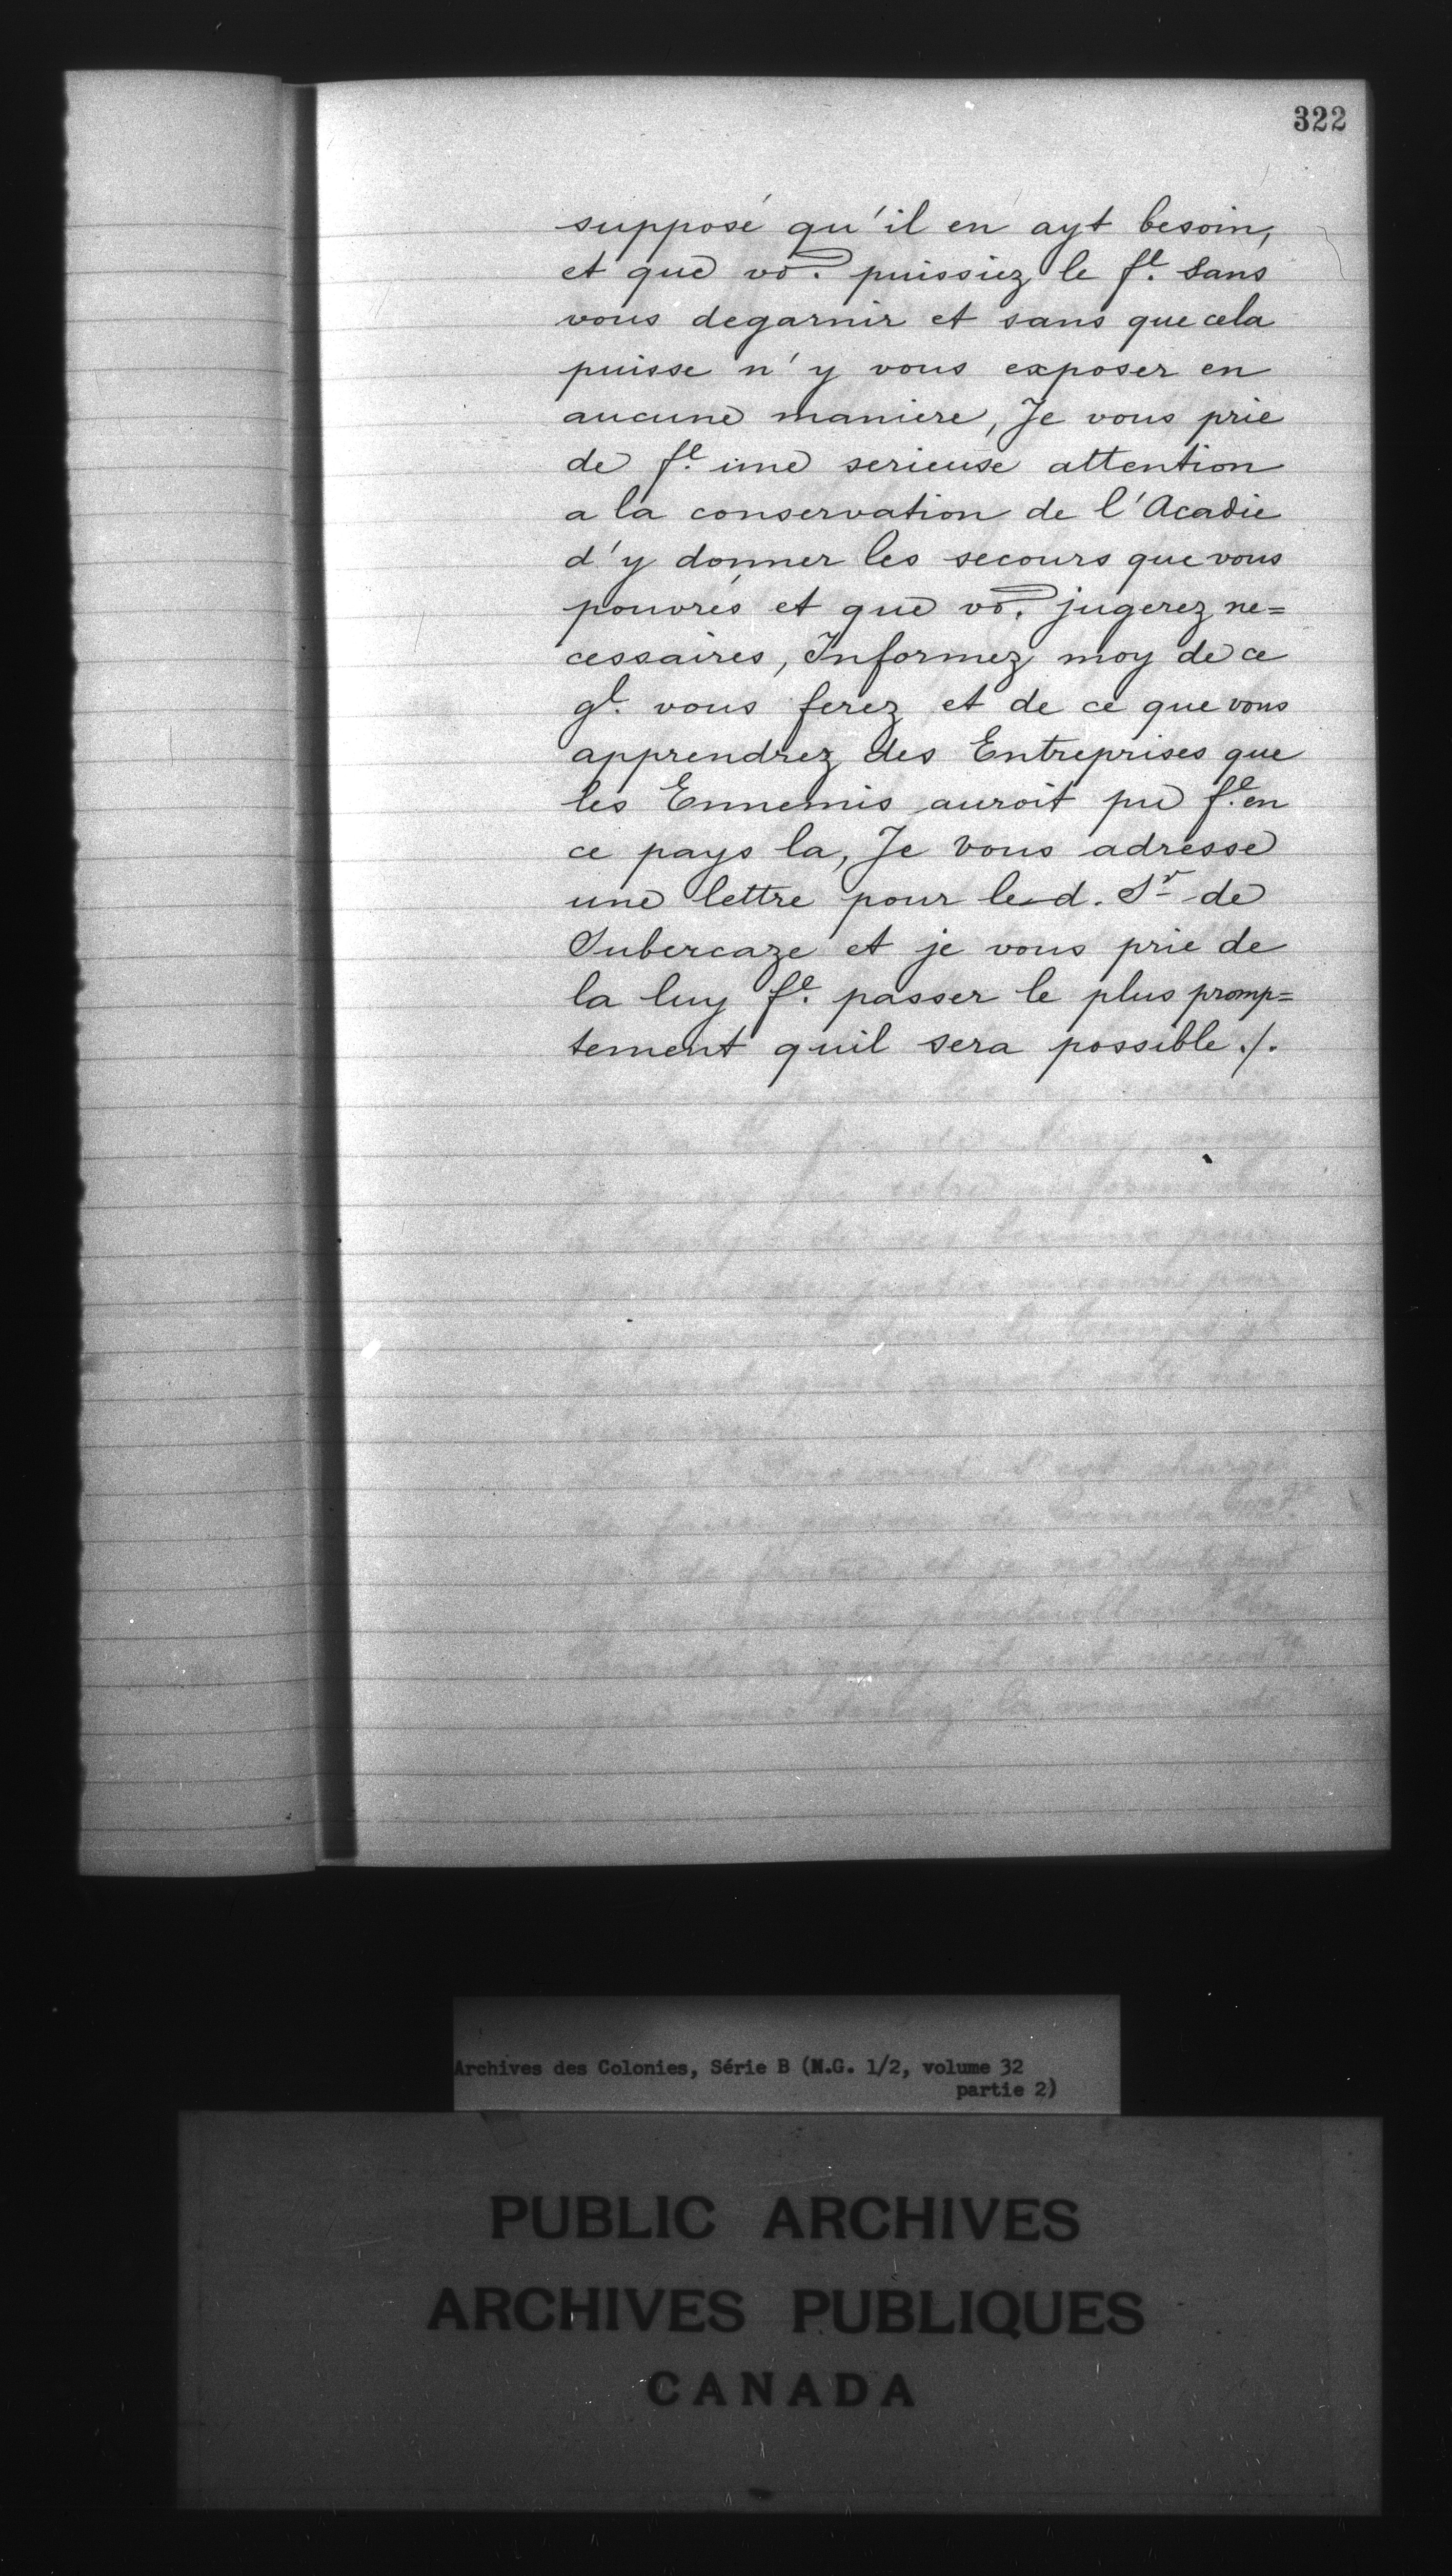 322
supposé qu'il en ayt besoin,
et que vo. puissiez le fe. sans
vous degarnir et sans que cela
puisse n'y vous exposer en
aucune maniere, Je vous prie
de fe. une serieuse attention
a la conservation de l'Acadie
d'y donner les secours que vous
pouvrés et que vo. jugerez ne=
cessaires, Informez moy de ce
ql. vous ferez et de ce que vous
apprendrez des Entreprises que
les Ennemis auroit pu fe. en
ce pays la, Je vous adresse
une lettre pour led. Sr de
Subercaze et je vous prie de
la luy fe. passer le plus promp=
tement quil sera possible ./.
Archives des Colonies, Série B (M.G. 1/2, volume 32
partie 2)
PUBLIC ARCHIVES
ARCHIVES PUBLIQUES
CANADA